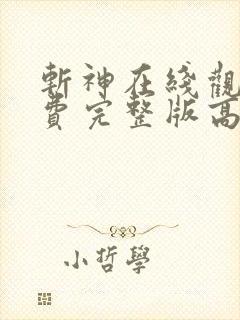 斬神在綫觀
費完整版高
小哲學